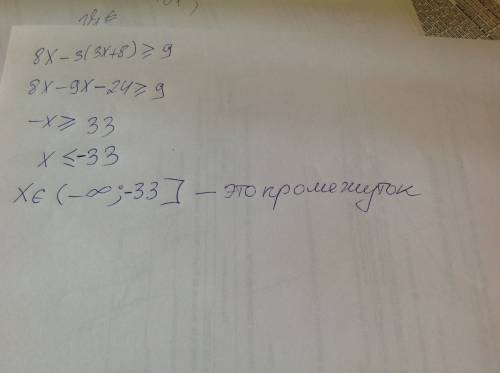 8x-3(3x+8)≥9
8x-9x-24≥9
-x≥33
x≤-33
x∈(-∞;-33] — это промежуток